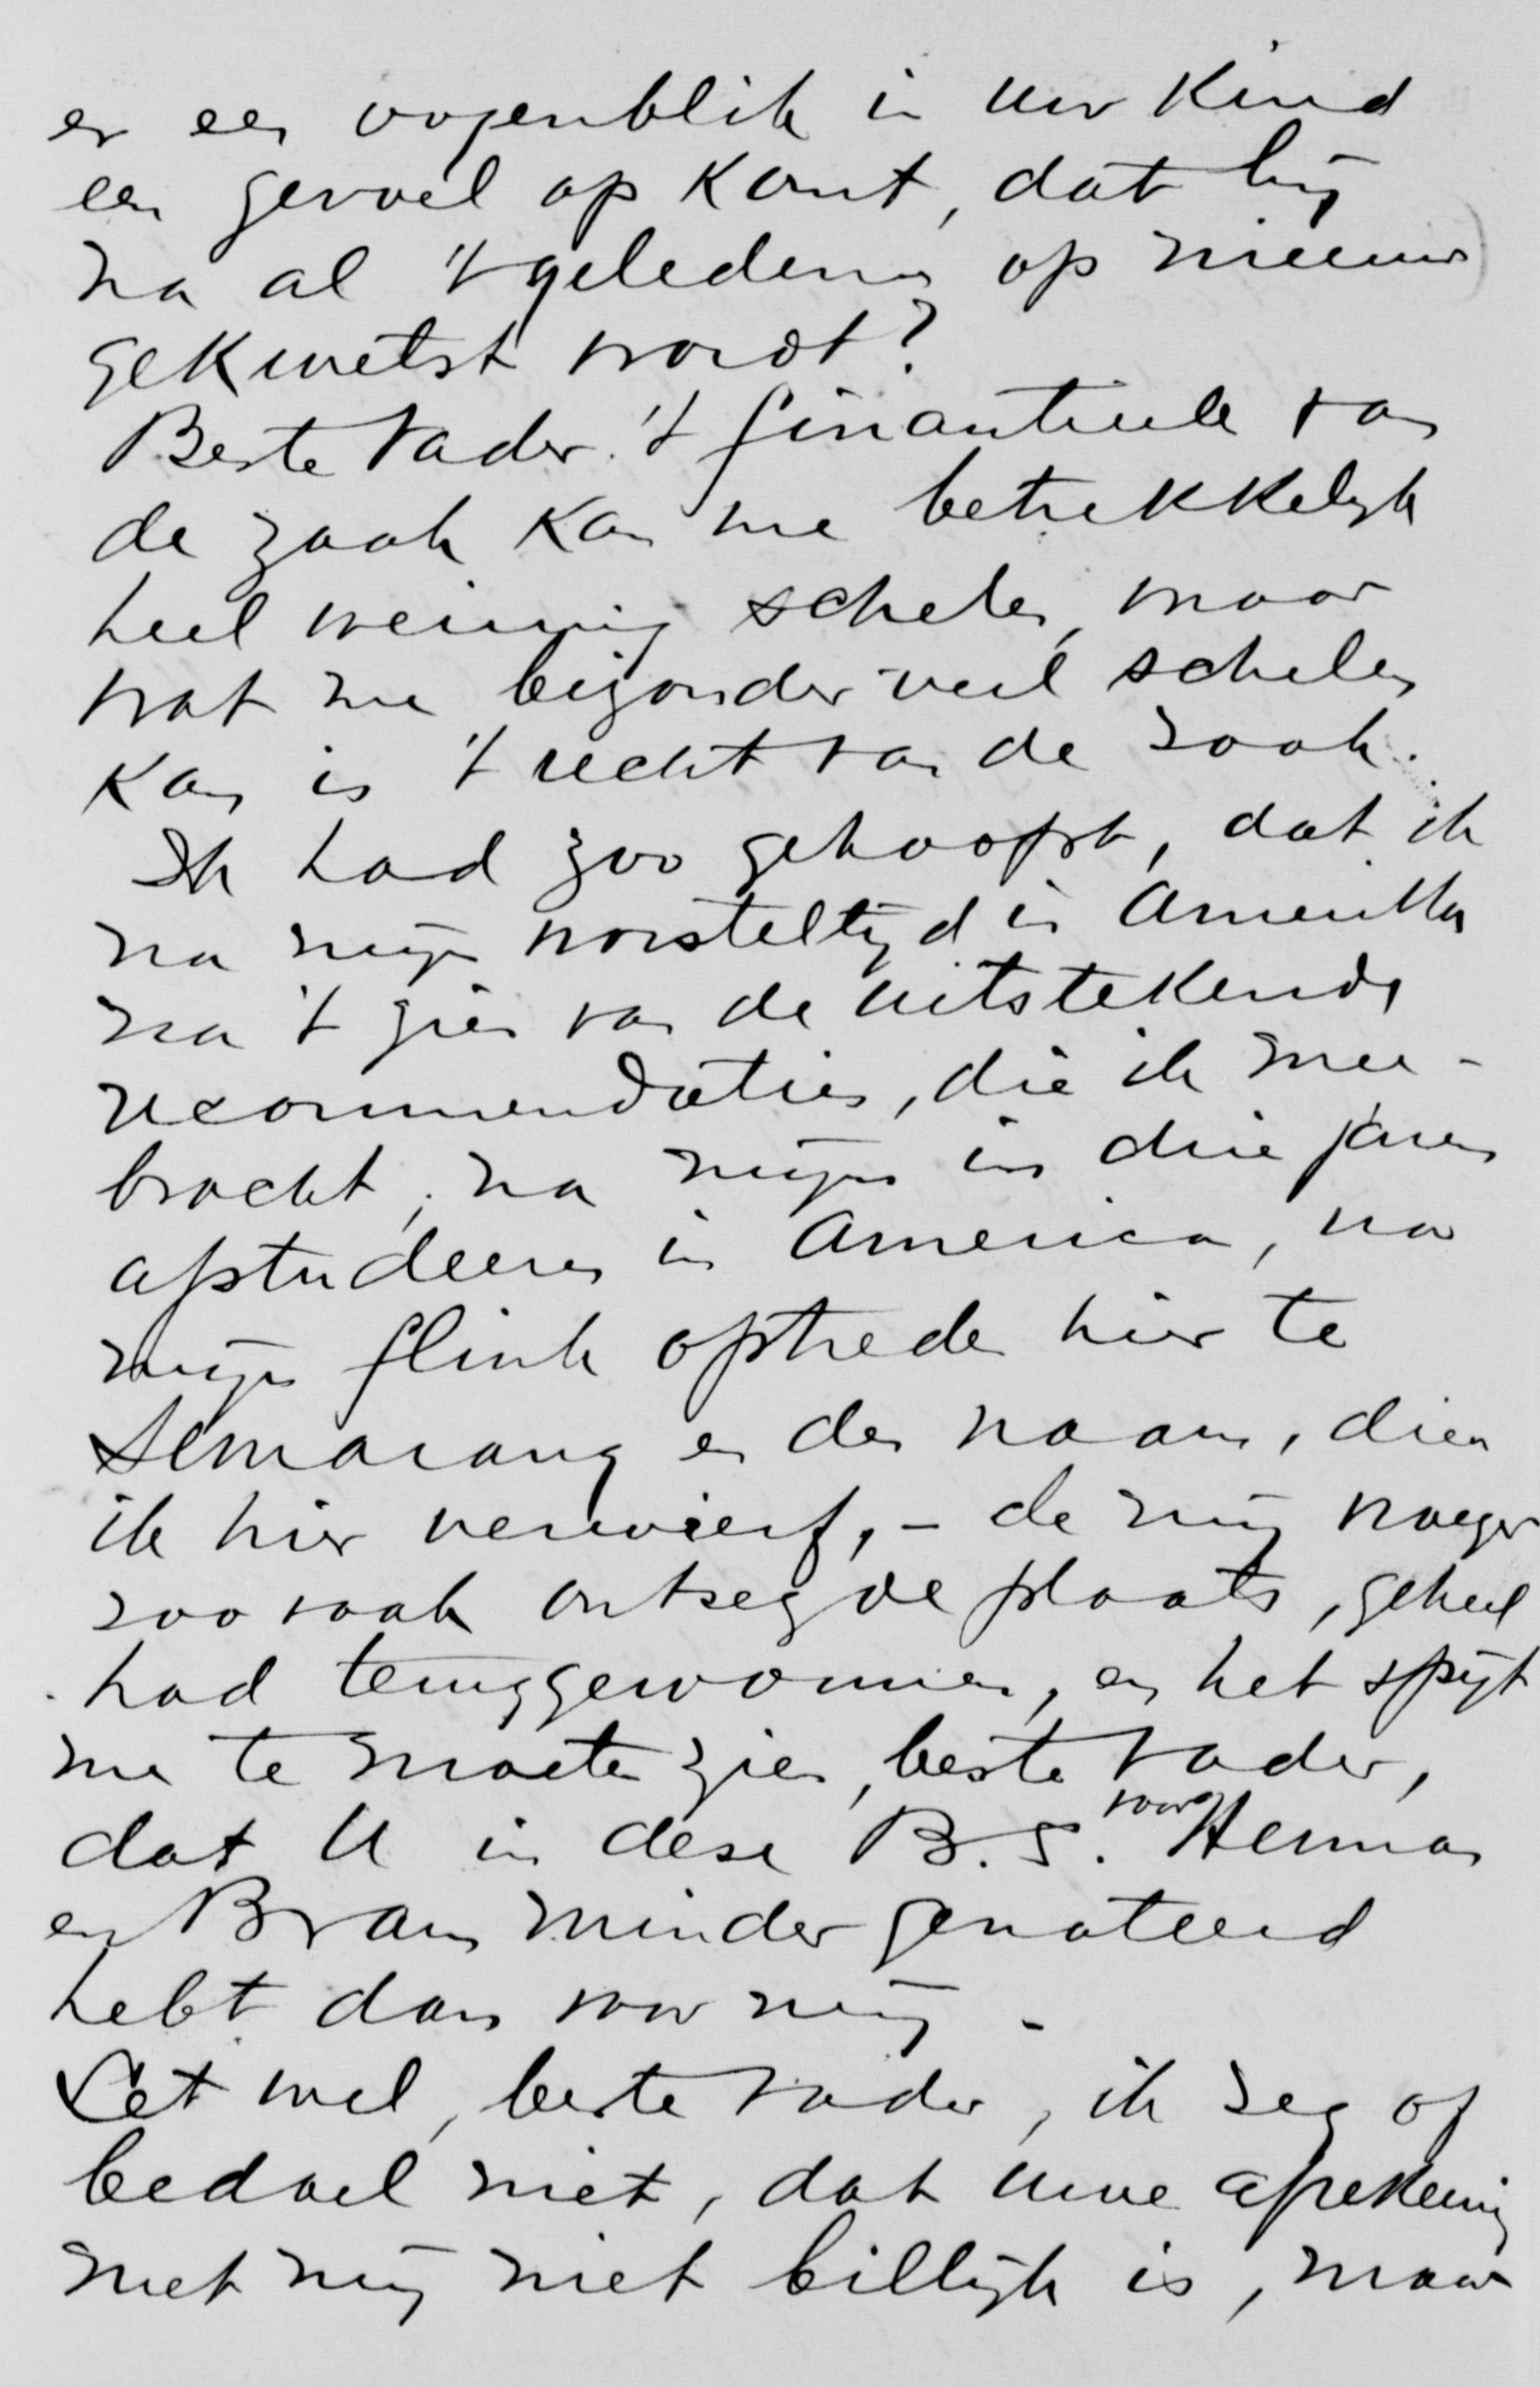 er een oogenblik in Uw Kind
een gevoel op komt, dat hij
na al 't geledene op nieuw
gekwetst wordt?
Beste Vader. 't finantieele van
de zaak kan me betrekkelijk
heel weinig schelen, maar
wat me bizonder veel schelen
kan is 't recht van de zaak.
Ik had zoo gehoopt, dat ik
na mijn worsteltijd in Amerika
na 't zien van de uitstekende
recommendaties, die ik mee-
bracht, na mijn in drie jaren
afstudeeren in America, na
mijn flink optreden hier te
Semarang en den naam, dien
ik hier verwierf, - de mij vroeger
zoo vaak ontzegde plaats, geheel
had teruggewonnen, en het spijt
me te moeten zien, beste Vader,
dat U in deze B.S. voor Herman
en Bram minder genoteerd
hebt dan voor mij -
Let wel, beste Vader, ik zeg of
bedoel niet, dat Uwe afrekening
met mij niet billijk is, maar